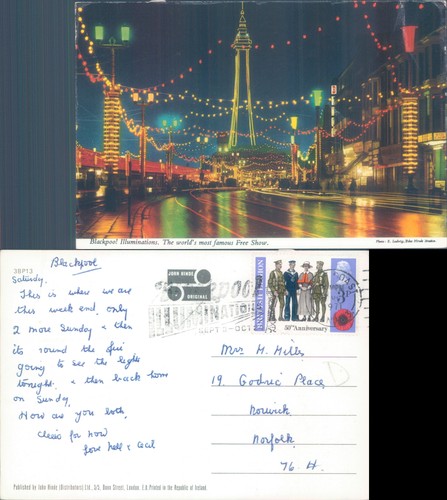 Blackpool Illuminations. The world's most famous Free Show.
Photo: E. Ludwig, John Hinde Studios
3BP13
Blackpool
Saturday.
This is where we are
this week end, only
2 more Sunday & then
its round the fire
going to see the lights
tonight. & then back home
on Sunday.
How are you both.
Cheerio for now
love Nell & Cecil
JOHN HINDE
ORIGINAL
BLACKPOOL
ILLUMINATIONS
BRITISH LEGION
50th Anniversary
Mrs H. Hills
19. Godric Place
Norwich
Norfolk
Published by John Hinde (Distributors) Ltd., Dane Street, London, E.8 Printed in the Republic of Ireland.